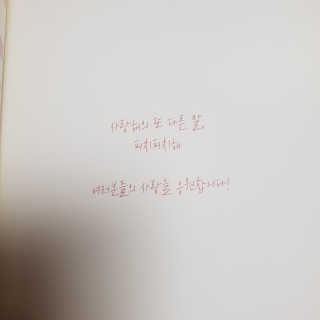 사랑해의 또 다른 말,
피치피치해
여러분들의 사랑을 응원합니다!